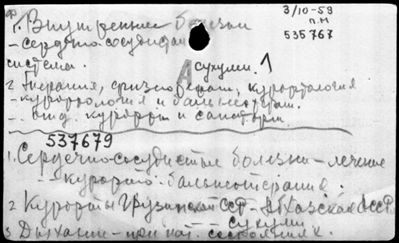 1. Внутренние болезни
3/10-59
п.м
535767
- сердечно-сосудистая
система.
А Сухуми. 1
2 Терапия, физиотерапия, курортология
- курортология и бальнеотерап.
курорты и санатории
537679
1. Сердечно-сосудистые болезни - лечение
- курорто-бальнеотерапия.
2 Курорты Грузинская ССР - Абхазская АССР
- Сухуми
3 Дыхание - при пат. состояниях.